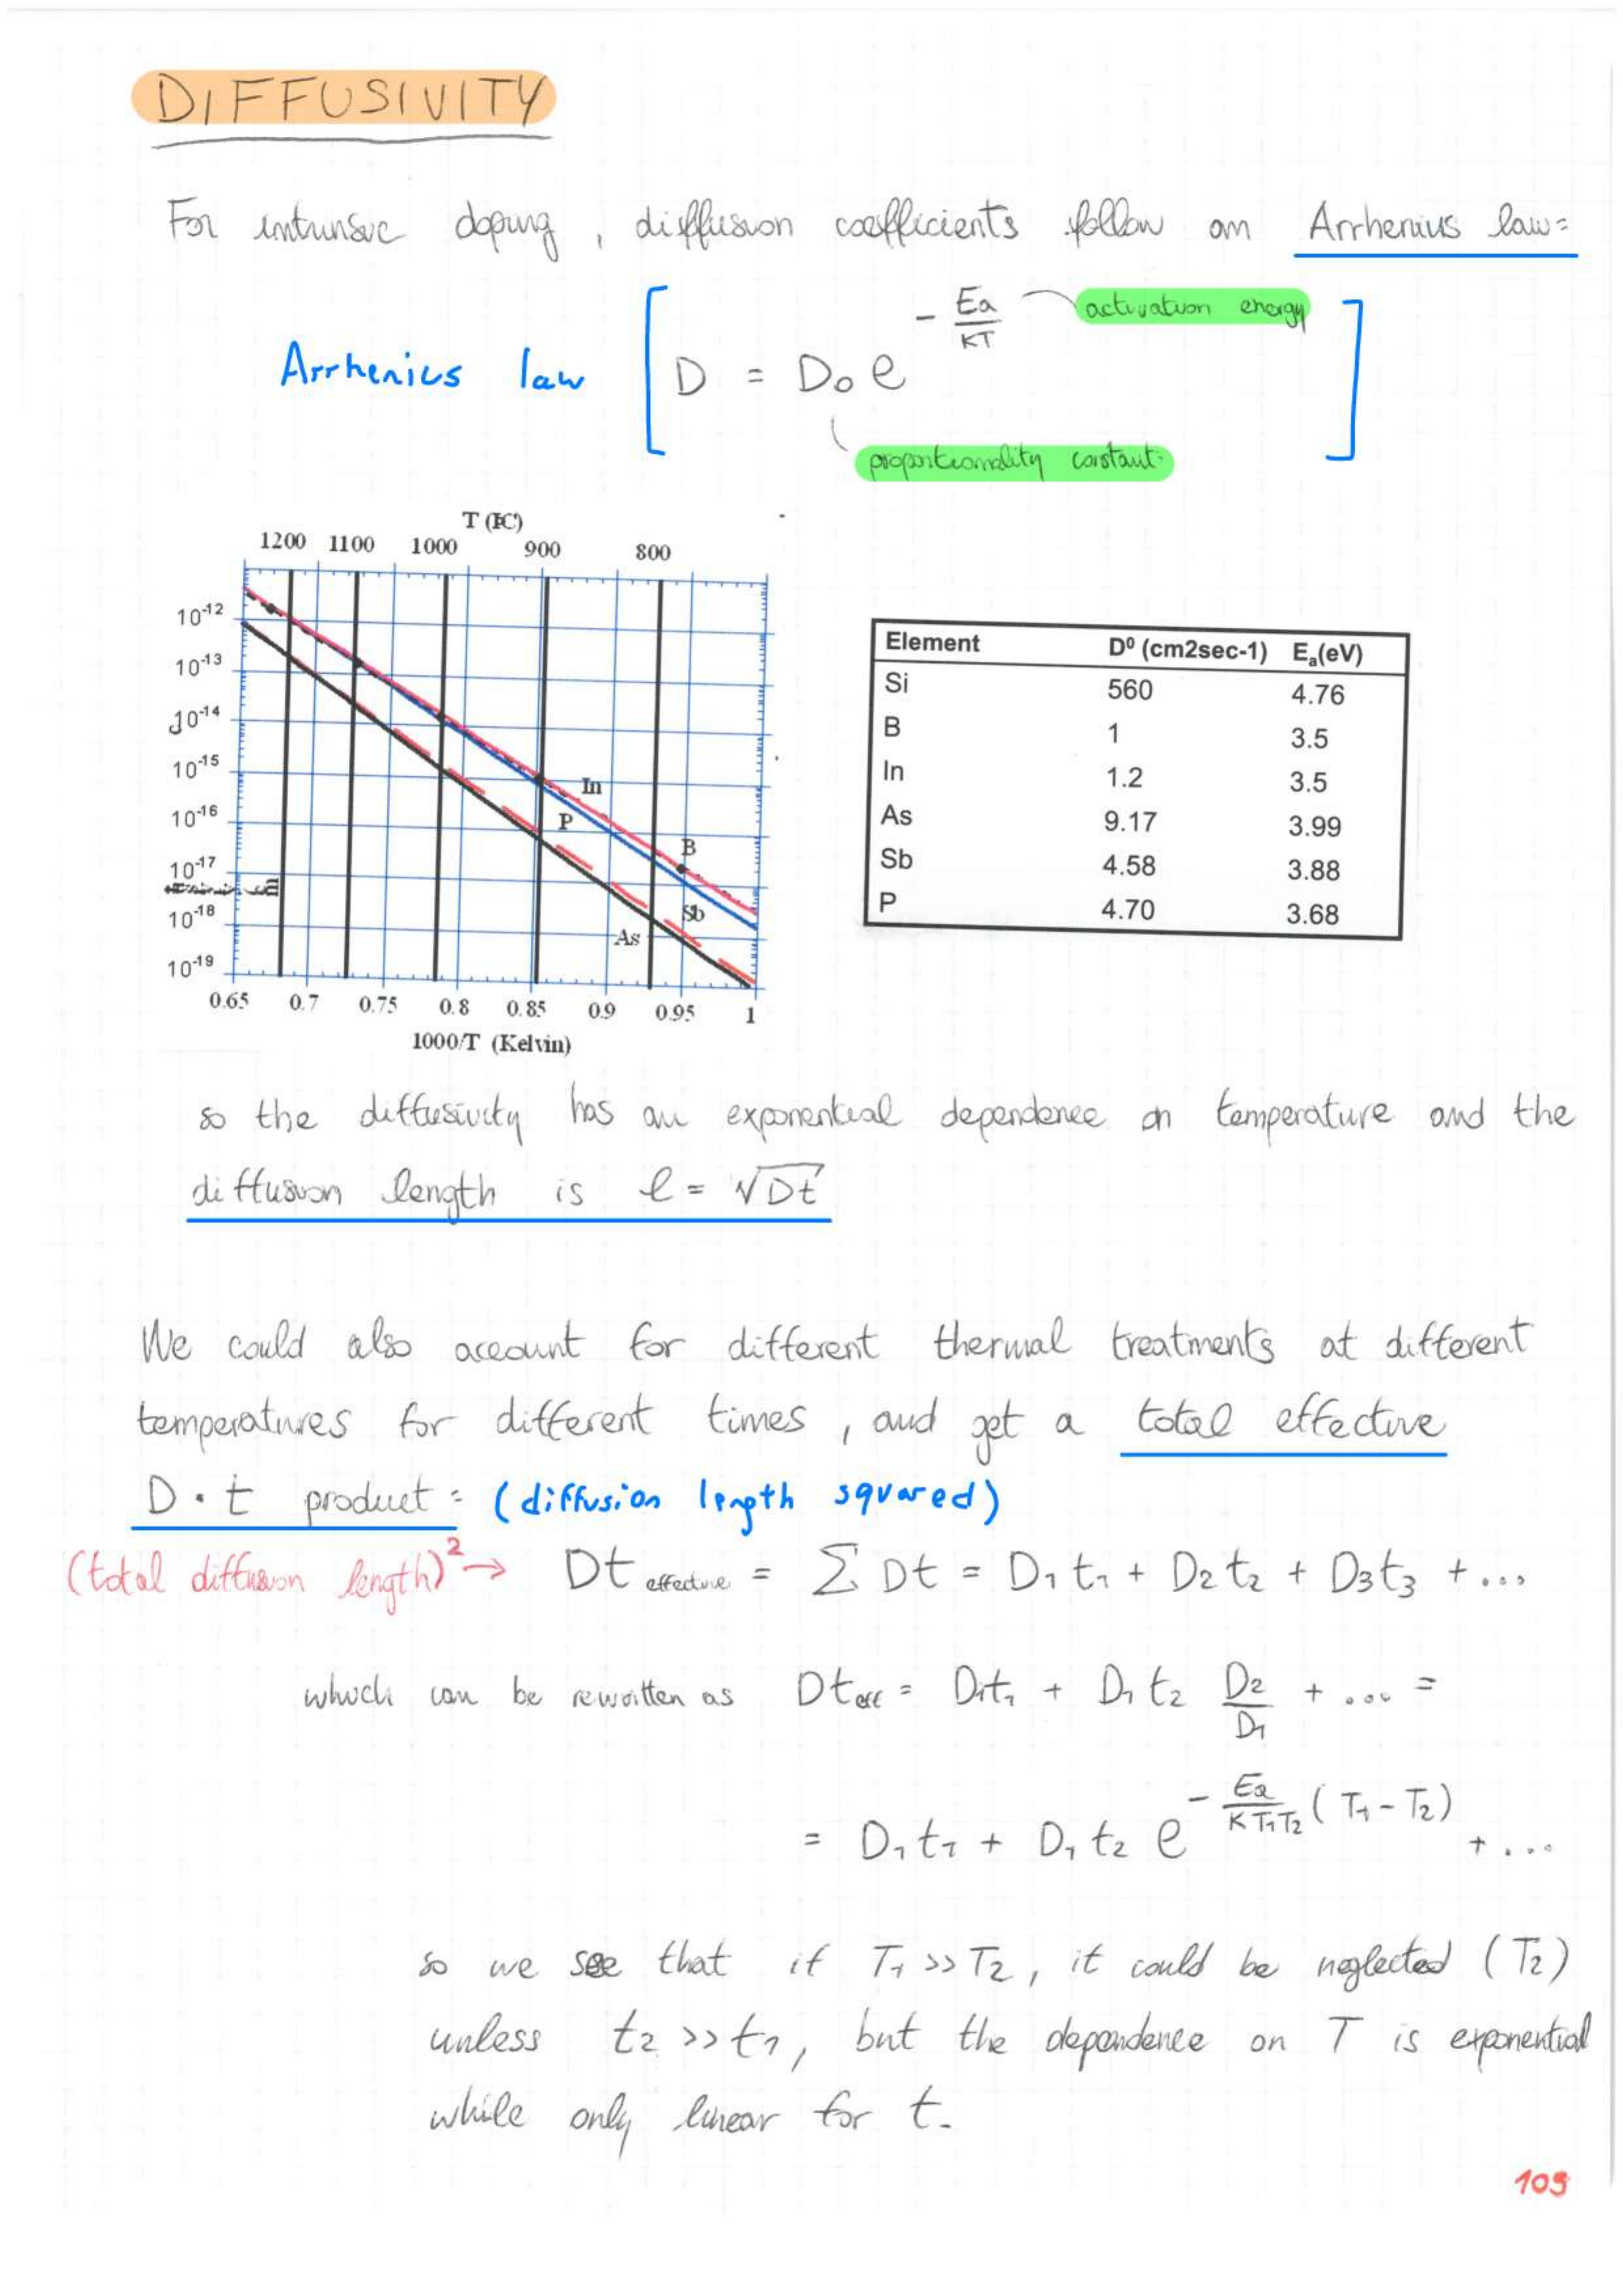 DIFFUSIVITY
For intrinsic doping, diffusion coefficients follow an Arrhenius law:
Arrhenius law [ D = D₀ e^(-Ea/KT) ]
activation energy
proportionality constant
T (C)
1200 1100 1000 900 800
10-12
10-13
10-14
10-15
10-16
10-17
10-18
10-19
In
P
B
Sb
As
0.65 0.7 0.75 0.8 0.85 0.9 0.95 1
1000/T (Kelvin)
Element D⁰ (cm2sec-1) Ea(eV)
Si 560 4.76
B 1 3.5
In 1.2 3.5
As 9.17 3.99
Sb 4.58 3.88
P 4.70 3.68
so the diffusivity has an exponential dependence on temperature and the
diffusion length is l = √Dt
We could also account for different thermal treatments at different
temperatures for different times, and get a total effective
D·t product: (diffusion length squared)
(total diffusion length)² → Dt effective = Σ Dt = D₁t₁ + D₂t₂ + D₃t₃ + ...
which can be rewritten as Dt eff = D₁t₁ + D₁t₂ D₂/D₁ + ... =
= D₁t₁ + D₁t₂ e^(-Ea/KT₁T₂ (T₁ - T₂)) + ...
so we see that if T₁ >> T₂, it could be neglected (T₂)
unless t₂ >> t₁, but the dependence on T is exponential
while only linear for t.
109